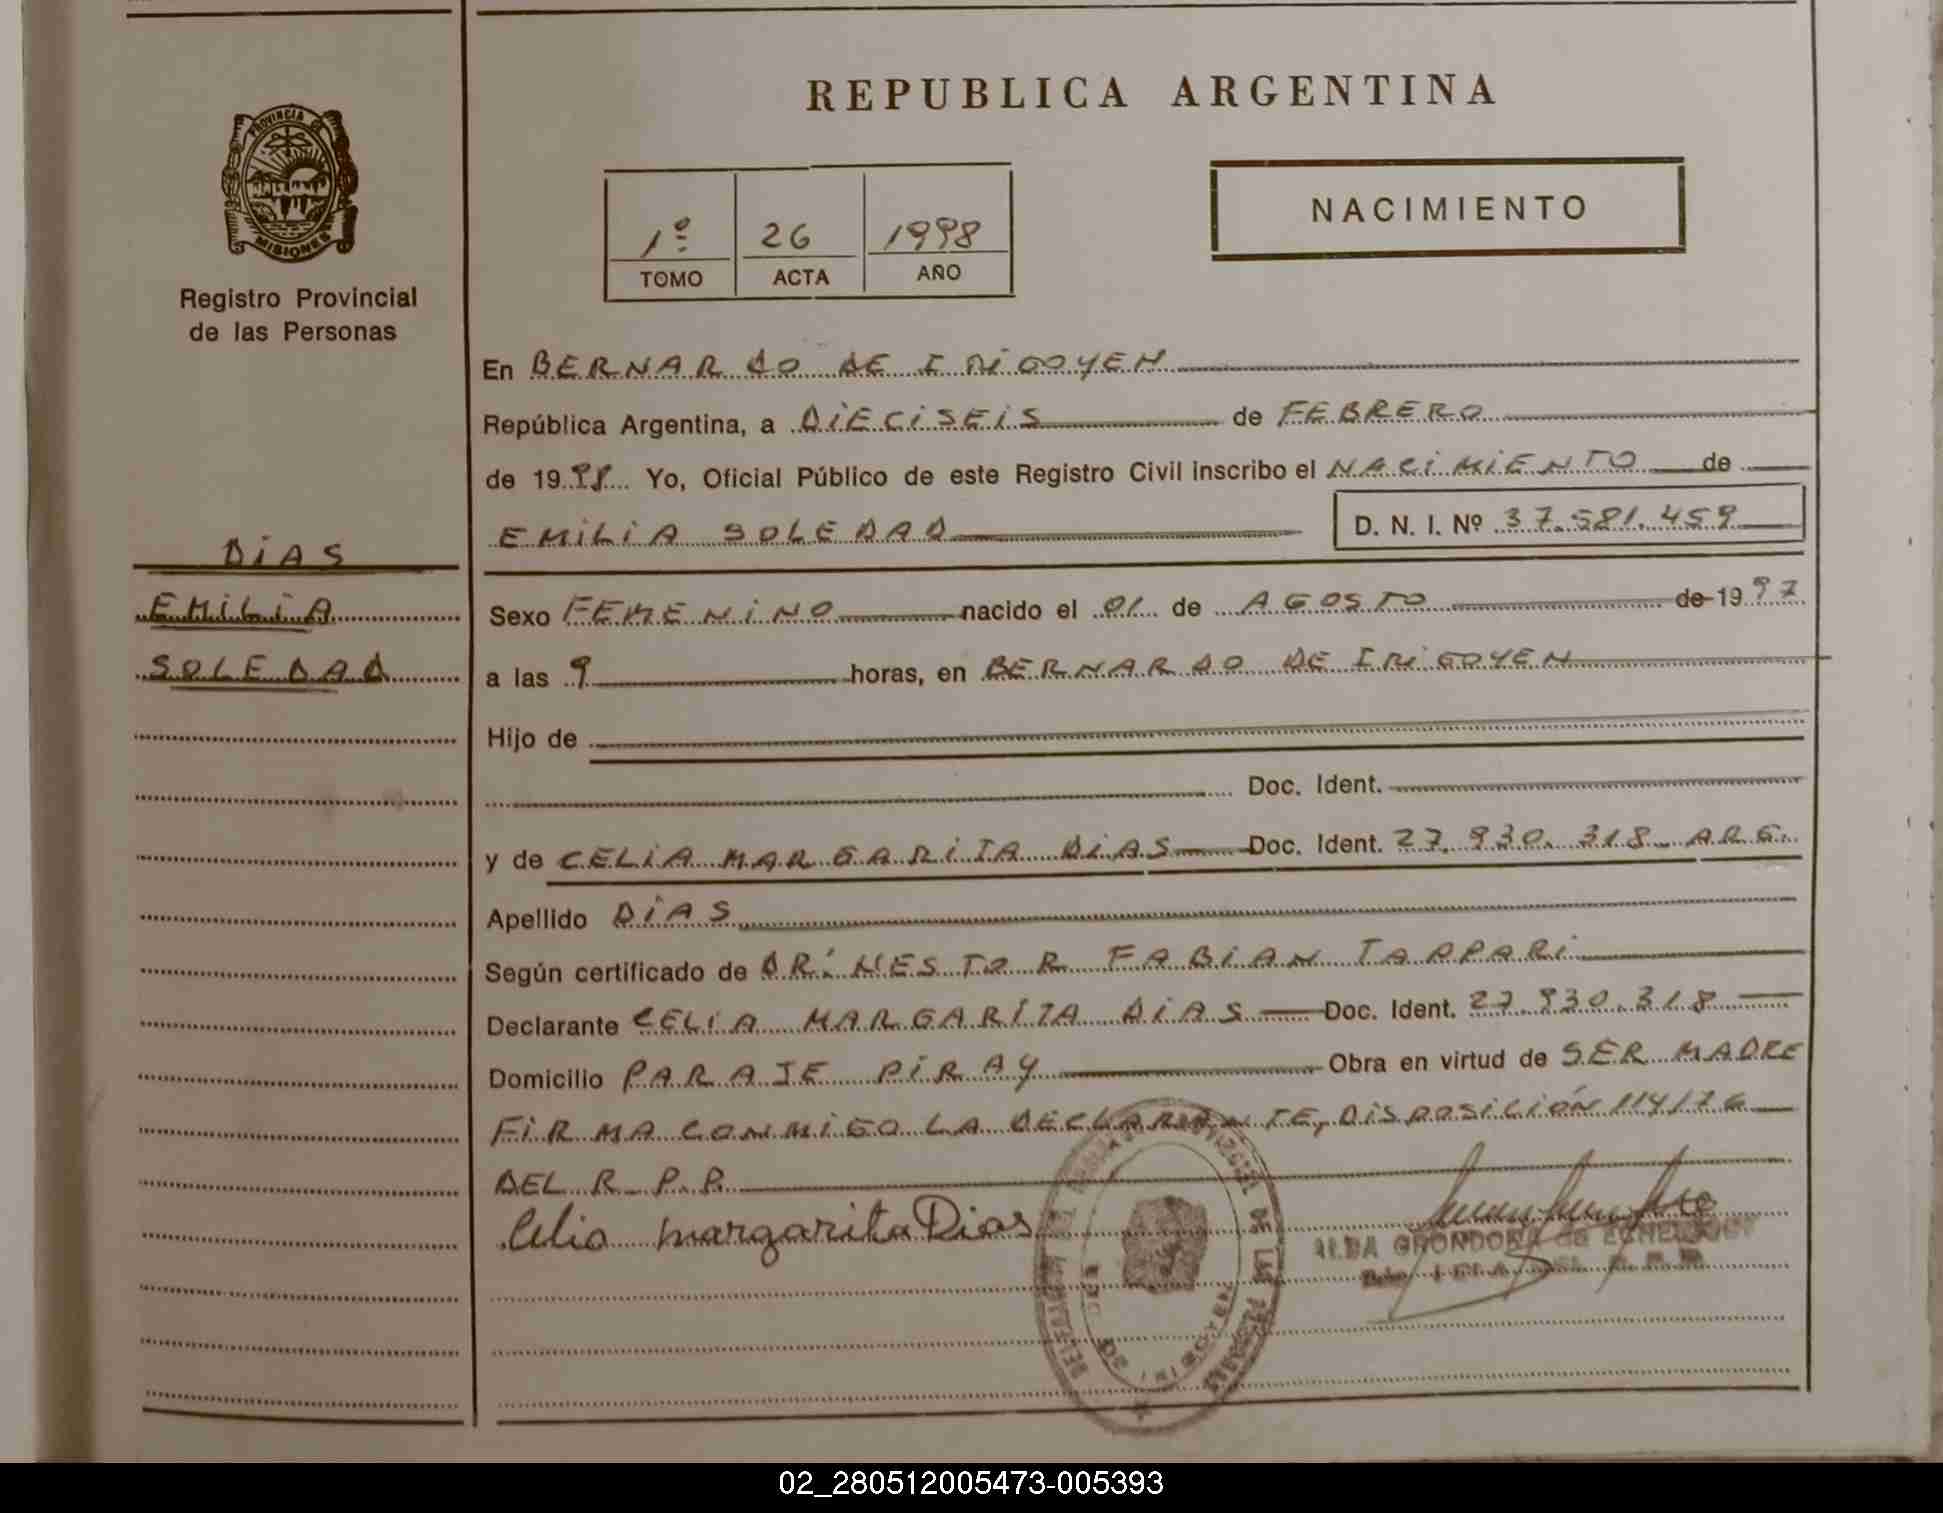 REPUBLICA ARGENTINA
PROVINCIA DE
MISIONES
Registro Provincial
de las Personas
1º 26 1998
TOMO ACTA AÑO
NACIMIENTO
En BERNARDO DE IRIGOYEN
República Argentina, a DIECISEIS de FEBRERO
de 1998 Yo, Oficial Público de este Registro Civil inscribo el NACIMIENTO de
EMILIA SOLEDAD D. N. I. Nº 37.581.459
DIAS
EMILIA
SOLEDAD
Sexo FEMENINO nacido el 01 de AGOSTO de 1997
a las 9 horas, en BERNARDO DE IRIGOYEN
Hijo de
Doc. Ident.
y de CELIA MARGARITA DIAS Doc. Ident. 27.930.318 ARG.
Apellido DIAS
Según certificado de DR. NESTOR FABIAN TAPPARI
Declarante CELIA MARGARITA DIAS Doc. Ident. 27.930.318
Domicilio PARAJE PIRAY Obra en virtud de SER MADRE
FIRMA CONMIGO LA DECLARANTE, DISPOSICIÓN 114/76
DEL R. P. P.
Celia margarita Dias
ALBA GRONDONA de
DE LAS PERSONAS
02_280512005473-005393